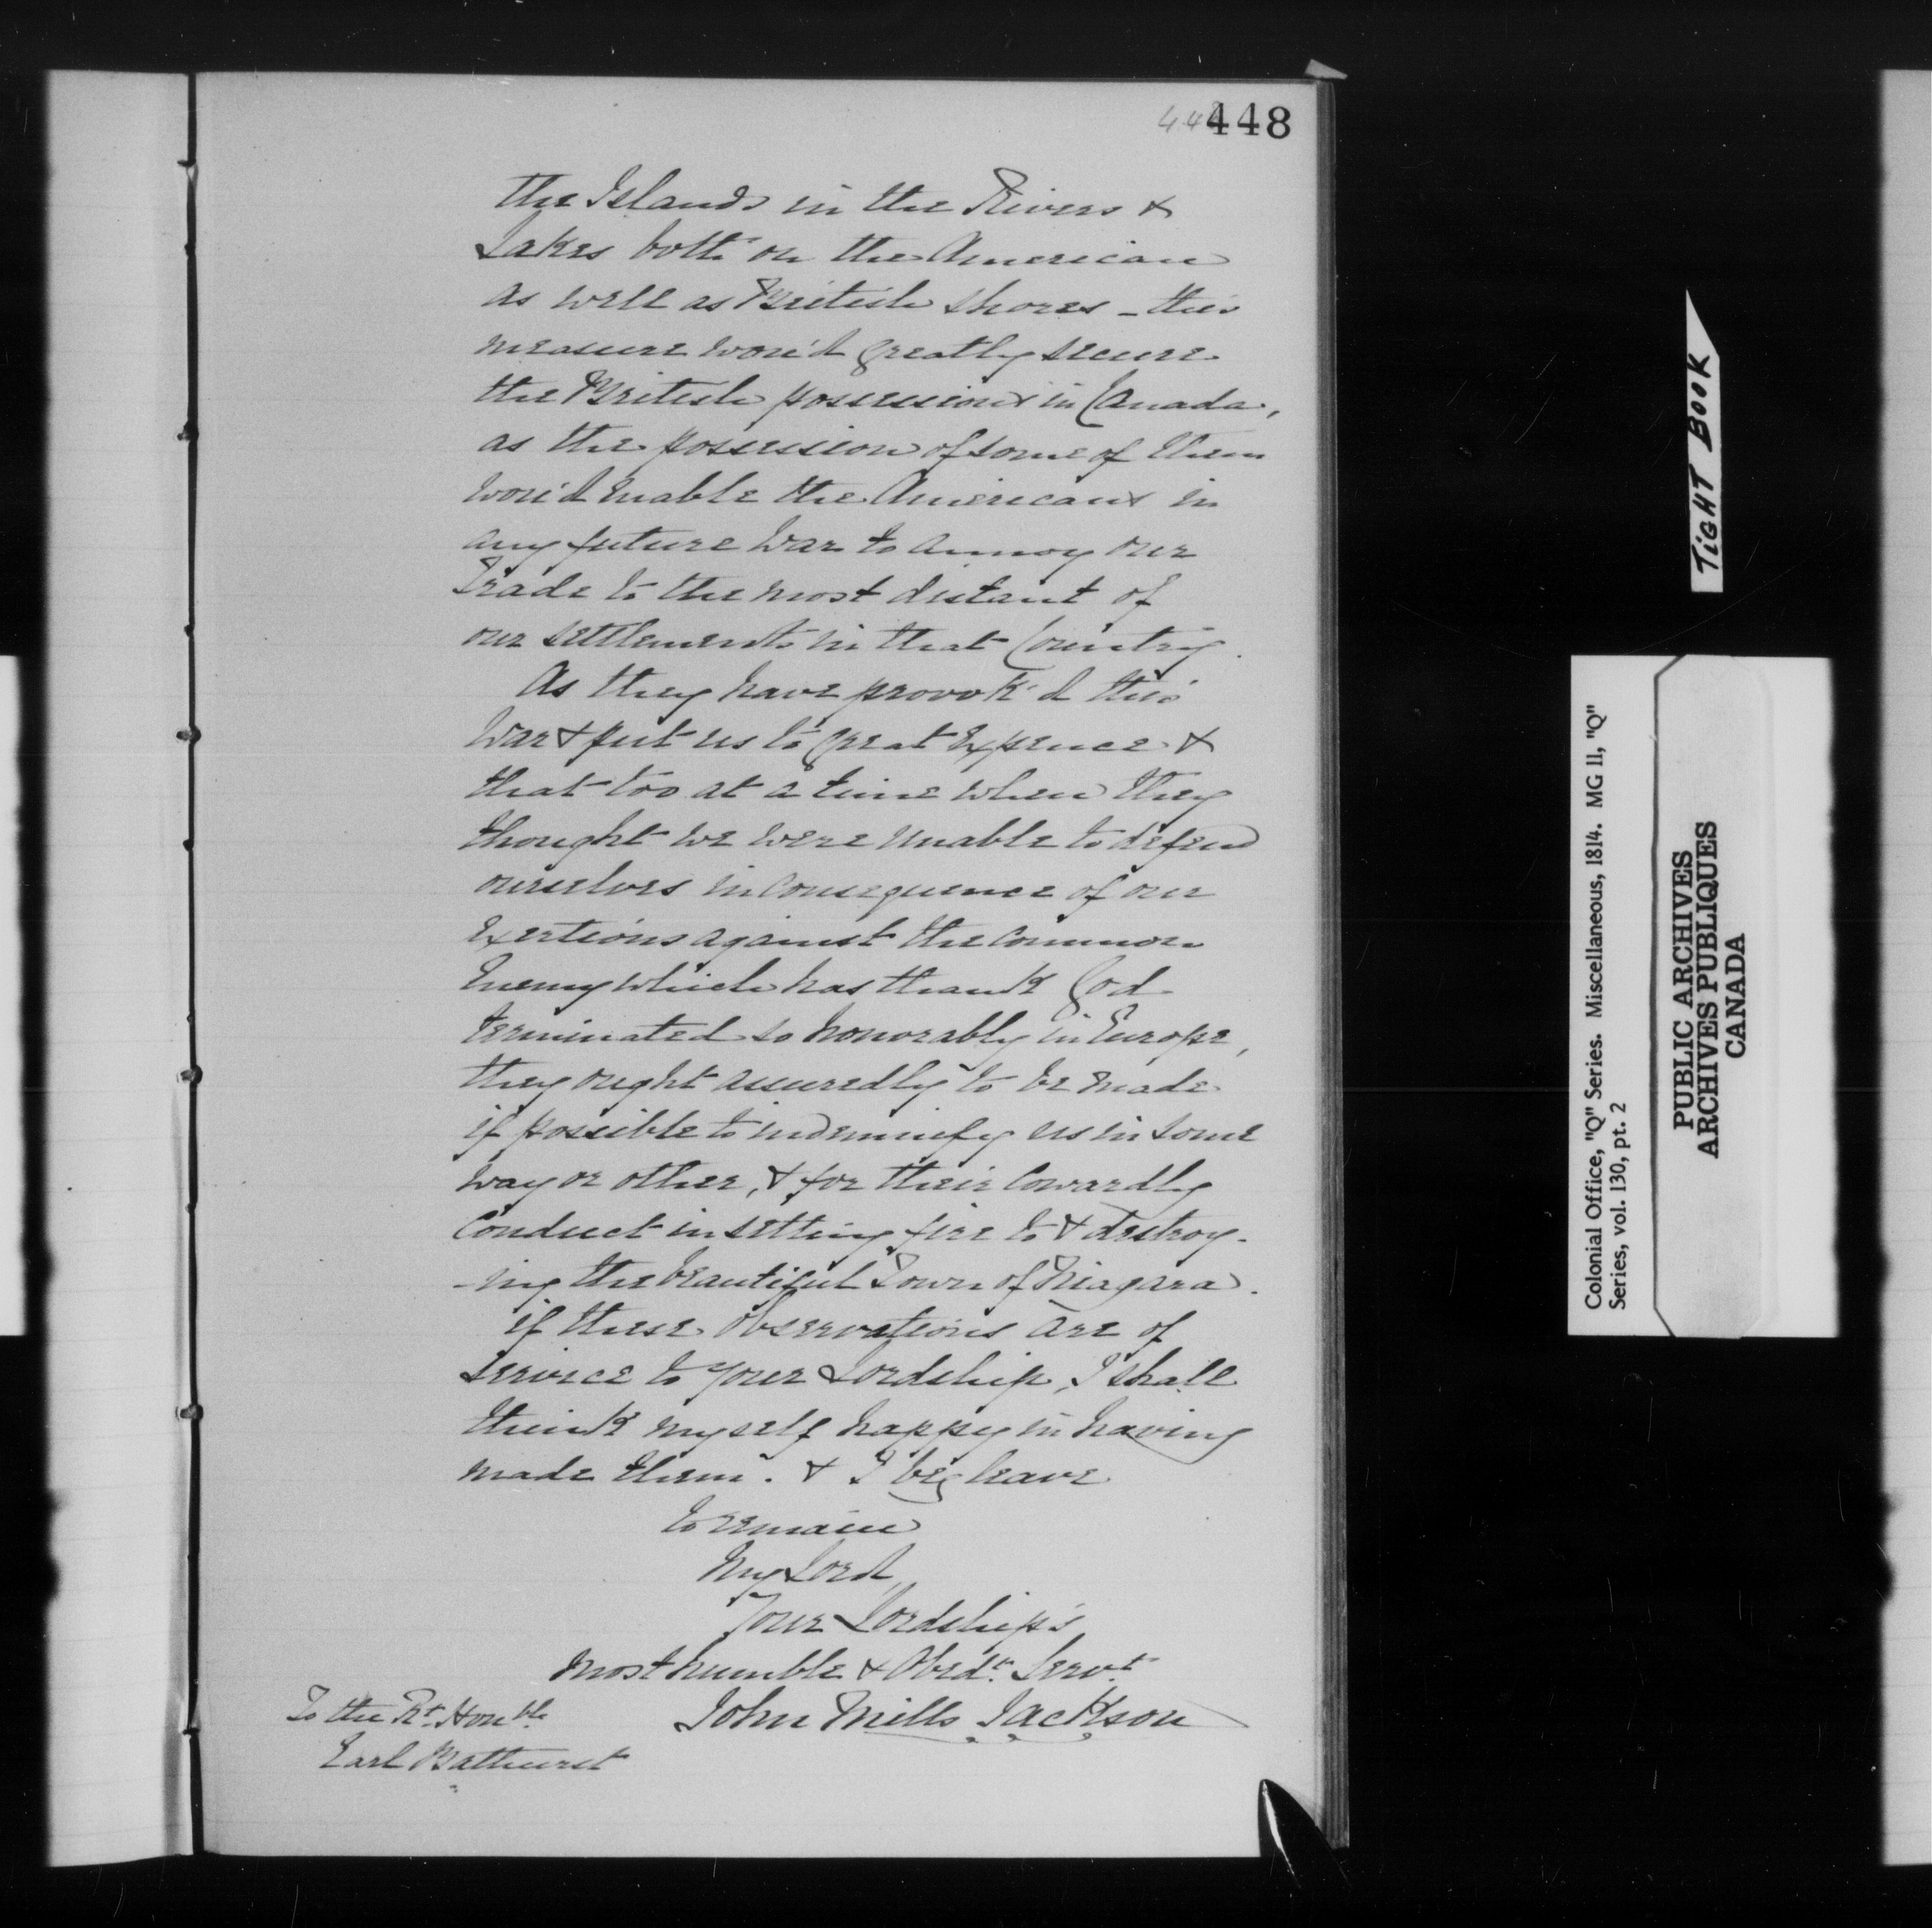 448
448
the Islands in the Rivers &
Lakes both on the American
as well as British shores _ this
measure wou'd greatly secure
the British possessions in Canada,
as the possession of some of them
wou'd enable the Americans in
any future War to annoy our
Trade to the most distant of
our settlements in that Country.
As they have provok'd this
War & put us to great Expence &
that too at a time when they
thought we were unable to defend
ourselves in consequence of our
Exertions against the common
Enemy which has thank God
terminated so honorably in Europe,
they ought assuredly to be made
if possible to indemnify us in some
way or other, & for their Cowardly
Conduct in setting fire to & destroy-
-ing the beautiful Town of Niagara.
if these observations are of
service to your Lordship, I shall
think myself happy in having
made them. & I beg leave
to remain
My Lord
Your Lordship's
most humble & Obedt. Servt.
John Mills Jackson
To the Rt. Honble.
Earl Bathurst
TIGHT BOOK
Colonial Office, "Q" Series. Miscellaneous, 1814. MG 11, "Q"
Series, vol. 130, pt. 2
PUBLIC ARCHIVES
ARCHIVES PUBLIQUES
CANADA